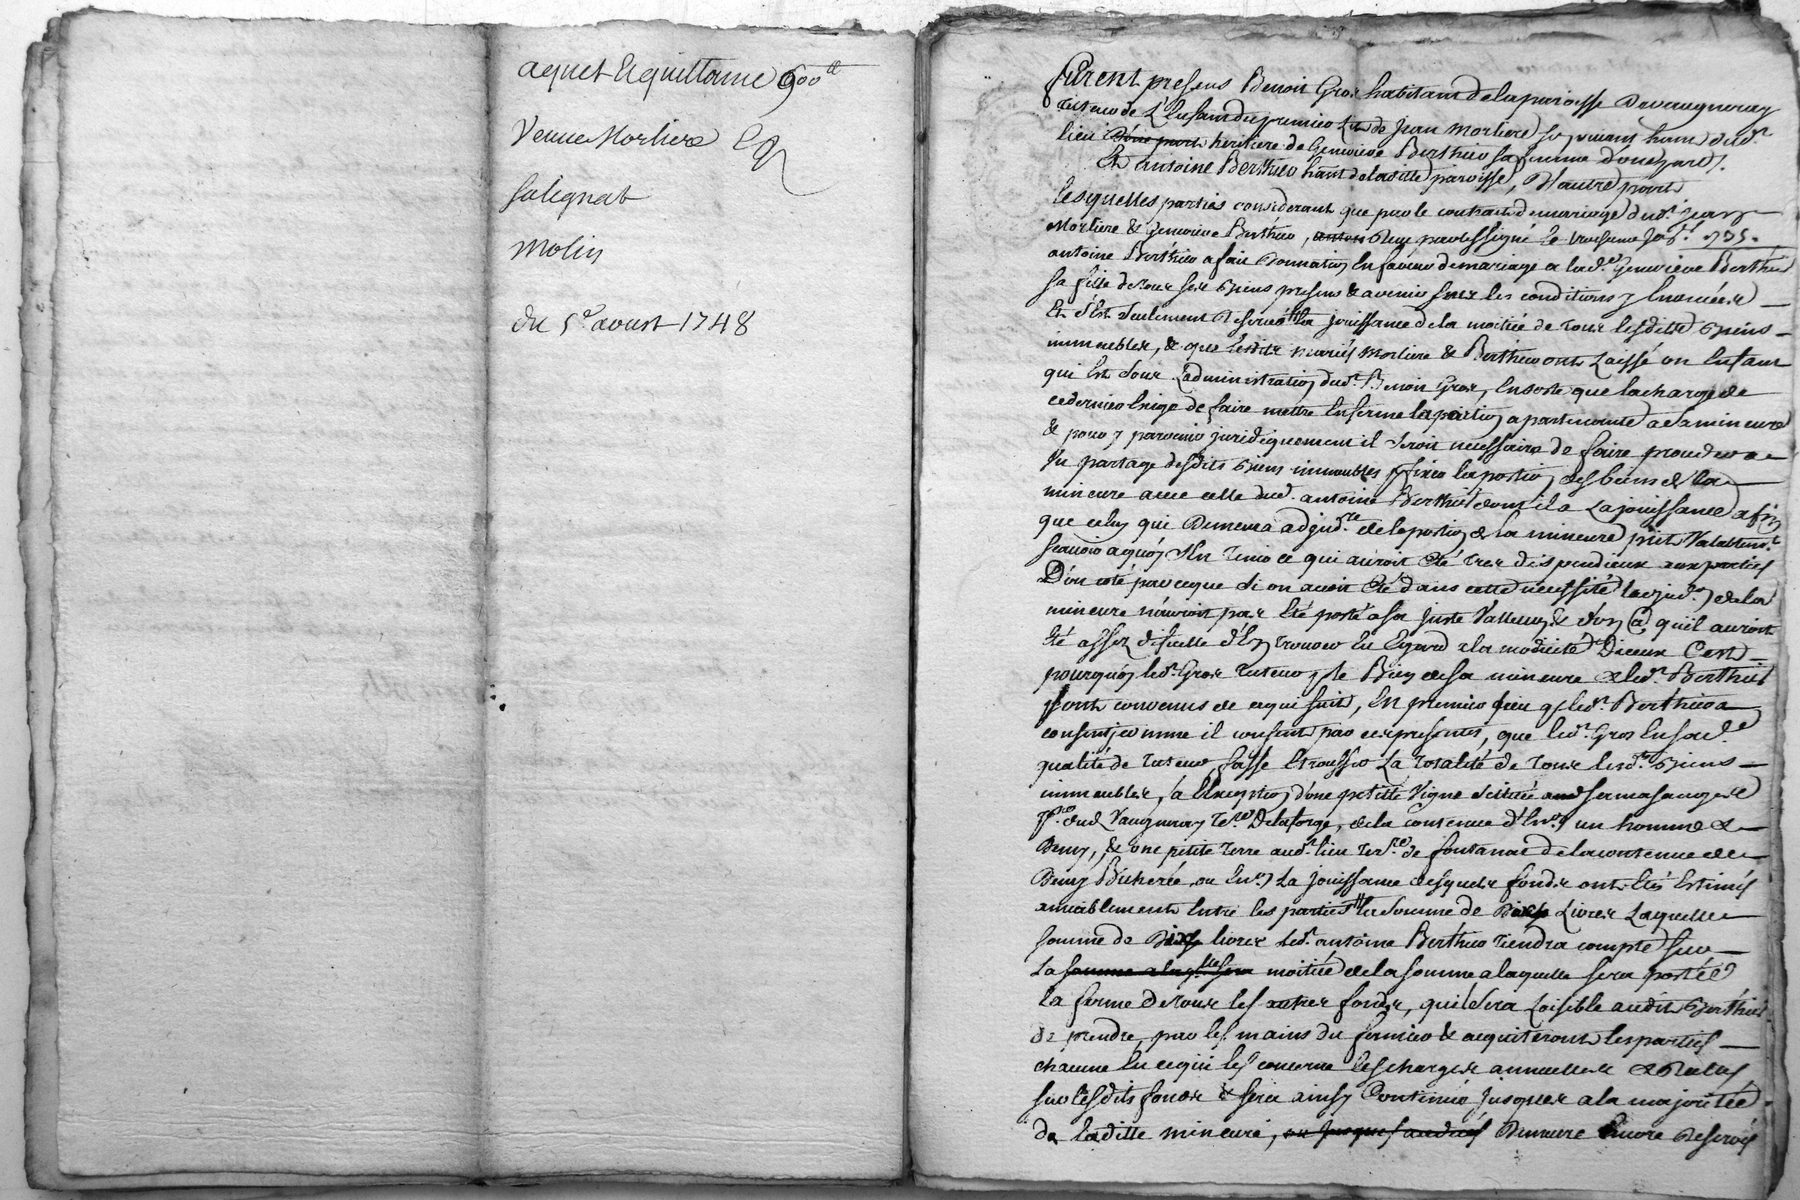 aquet & quittance 600lt
Veuve Morliere
Salignat
Molin
du 5e aoust 1748
furent presens Benoit Gros habitant de la paroisse de vaugneray
tuteur de L'enfant du premier Lit de Jean Morliere
lieu d'une part heritiere de Genevieve Berthier sa femme d'une part.
Et antoine Berthier hant de laditte paroisse, D'autre part
lesquelles parties considerant que par le contrat de mariage dudt Jean
Morliere & Genevieve Berthier, Reçu par le soussigné le troisieme 1735.
antoine Berthier a fait donnation en faveur de mariage a ladte Genevieve Berthier
sa fille de tous ses biens presens & avenir sous les conditions y enoncées
Et s'est seulement reservé la jouissance de la moitiée de tous lesdits biens
immeubles, & que lesdits mariés Morliere & Berthier ont Laissé un Enfant
qui Est sous L'administration dudt Benoit Gros, Ensorte que la charge de
ce dernier Exige de faire mettre En ferme la portion apartenante a sa mineure
& pour y parvenir juridiquement il seroit necessaire de faire proceder a
un partage desdits biens immeubles fixer la portion des biens de la
mineure avec celle dudt antoine Berthier dont il a La jouissance afin
que celuy qui Demeura adjudre de la portion de la mineure put Valablemt
scavoir a quoy s'En tenir ce qui auroit Eté tres dispendieux aux parties
D'un coté parceque si on avoit Eté dans cette necessité de la
mineure n'auroit pas Eté porté a sa juste Valleur, & d'un a qu'il auroit
Eté assez dificille d'En trouver En Egard a la modicité D'iceux C'est
pourquoy ledt Gros tuteur de sa mineure & ledt Berthier
sont convenus de ce qui suit, En premier lieu q. ledt Berthier a
consenti comme il consent par ces presentes, que ledt Gros En sade
qualité de tuteur, fasse La totalité de tous lesdts biens
immeubles, a l'Exception d'une petitte Vigne scituée
dud Vaugneray Tere Delaforge, de la contenue d'En un homme &
Demy, & une petite terre audt lieu terre de fontanas de la contenue de
Demy Bicherée ou En la jouissance desquels fonds ont Etés Estimés
amiablement entre les parties la somme de Dix Livres Laquelle
somme de Dix livres ledt antoine Berthier tiendra compte sur
La somme a laqlle sera moitiée de la somme a laquelle sera portée
la ferme de tous les autres fonds, qu'il sera Loisible audit Berthier
de prendre par les mains du fermier & acquiteront les parties
chacune En ce qui les concerne les charges annuelles & Reelles
sur lesdits fonds & sera ainsy Continué jusques a la majoritée
de laditte mineure, ou jusques Demeure Encore Reservés